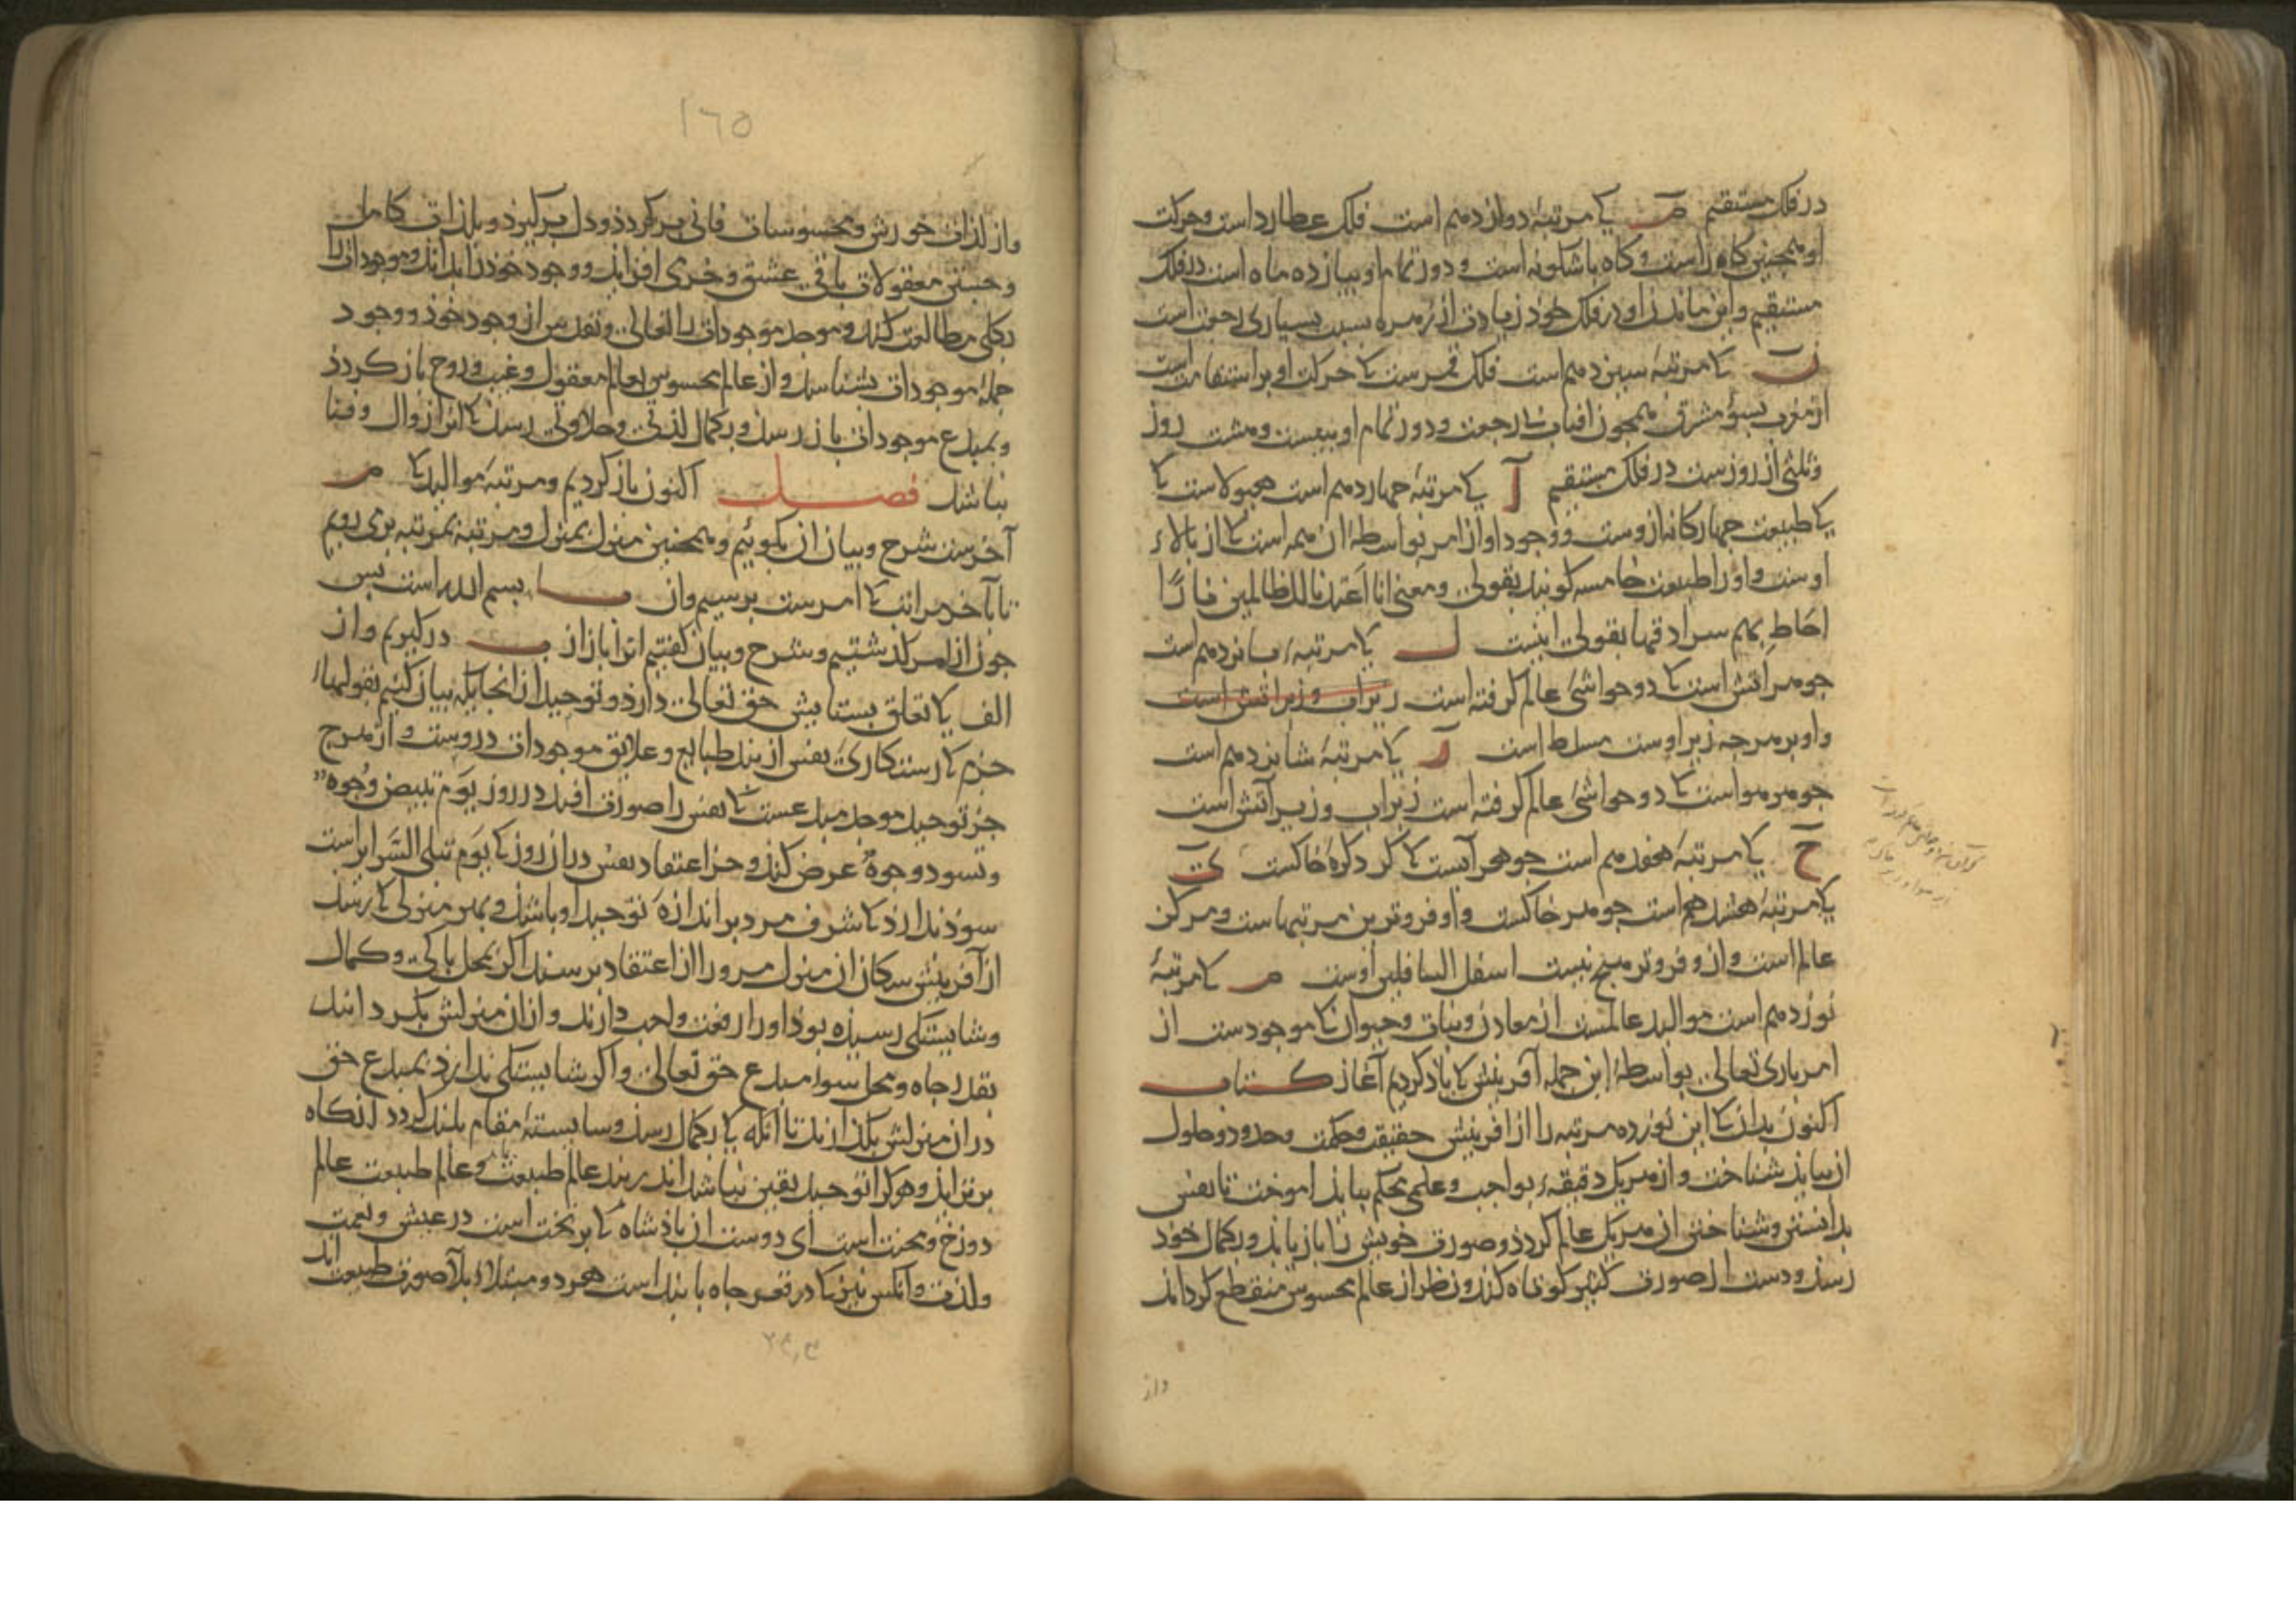 در فلک مستقیم ص کی مرتبهٔ دوازدهم است فلک عطارد است وحرکت
او همچنین کاه راست و کاه باشکونه است و دور تمام او بیازده ماه است در فلک
مستقیم واین ماندن او در فلک خود زیادت از زهره بسبب بسیاری رجعت است
ن کا مرتبهٔ سیزدهم است فلک قمرست کا حرکت او بر استقامت است
از مغرب بسؤ مشرق همجون افتاب بی رجعت ودور تمام او ببیست وهشت روز
وثلثی از روزست در فلک مستقیم آ کی مرتبهٔ جهاردهم است هیولاست کا
کا طبیعت جهارکانه ازوست ووجود او از امر بواسطهٔ ان همه است کا از بالاء
اوست واورا طبیعت خامسه کویند بقولی ومعنی انا اعتدنا للظالمین نارًا
احاط بهم سرادقها بقولی اینست ل کا مرتبهٔ بانزدهم است
جوهر اتش است کا دو حواشیٔ عالم کرفته است زیراب وزیر اتش است
واو بر هرجه زیر اوست مسلط است ر کا مرتبهٔ شانزدهم است
جوهر هواست کا دو حواشیٔ عالم کرفته است زبراب وزیر آتش است
ح کا مرتبهٔ هفدهم است جوهر آبست کا کرد کرهٔ خاکست ک
کا مرتبهٔ هشدهم است جوهر خاکست واو فروترین مرتبهاست ومرکز
عالم است وازو فروتر هیج نیست اسفل السافلین اوست م کا مرتبهٔ
نوزدهم است موالید عالمست از معادن ونبات وحیوان کا موجودست از
امر باری تعالی بواسطهٔ این جمله آفرینش کا یاد کردیم آغاز کتاب
اکنون بدان کا این نوزده مرتبه را از افرینش حقیقت وحکمت وحدود وحلول
ان بباید شناخت واز هریک دقیقهٔ بواجب وعلمی محکم بباید اموخت تا نفس
بدانستن وشناختن ان هریک عالم کردد وصورت خویش را باز یابد وبکمال خود
رسد ودست از صورت کثیر کوتاه کند ونظر از عالم محسوس منقطع کرداند
واز
واز لذات خورش ومحسوسات فانی برکردد ودل برکیرد وبلذات کامل
وحسن معقولات باقی عشق وخری افزاید ووجود خود را بداند وموجودات را
بکلی مطالعت کند وموجد موجودات را تعالی وتقدس از وجود خود ووجود
جملهٔ موجودات بشناسد واز عالم محسوس بعالم معقول وغیب وروح باز کردد
وبمبدع موجودات باز رسد وبکمال لذتی وحلاوتی رسد کا انرا زوال وفنا
نباشد فصل اکنون باز کردیم ومرتبهٔ موالید کا م
آخرست شرح وبیان ان بکوئیم وهمچنین منزل بمنزل ومرتبه بمرتبه بری رویم
تا بآخر مراتب کا امرست برسیم وان با بسم الله است بس
جون از امر کذشتیم وشرح وبیان کفتیم انرا باز از ب درکیریم واز
الف کا تعلق بستایش حق تعالی دارد وتوحید از انجایکه بیان کنیم بقولها
جزم کا رستکاریٔ نفس از بند طبایع وعلایق موجودات دروست واز هرج
جز توحید موحد مبدعست کا نفس را صورت افتد در روز یوم تبیض وجوه
وتسود وجوه عرض کند وجز اعتقاد نفس دران روز کا یوم تبلی السرایرست
سوذ ندارد کا شرف مرد بر اندازهٔ توحید او باشد وبهر منزلی کا رسد
از آفرینش سکان ان منزل مرورا از اعتقاد برسند اکر بمحل باکی وکمال
وشایستکی رسیده بود اورا رفعت واجب دارند وازان منزلش بکردانند
بقدر جاه ومحل سوا مبدع حق تعالی واکر شایستکی ندارد بمبدع حق
دران منزلش بکذارند تا انکه کا بکمال رسد وشایستهٔ مقام بلند کردد انکاه
برتر اید وهرکرا توحید یقین نباشد اندر بند عالم طبیعت وعالم طبیعت عالم
دوزخ ومحنت است ای دوست ان باذشاه کا بر تخت است در عیش ونعمت
ولذت وانکس نیز کا در قعر جاه با بند است هردو مبتلاء بلاء صورت طبیعت اند
١٦٥